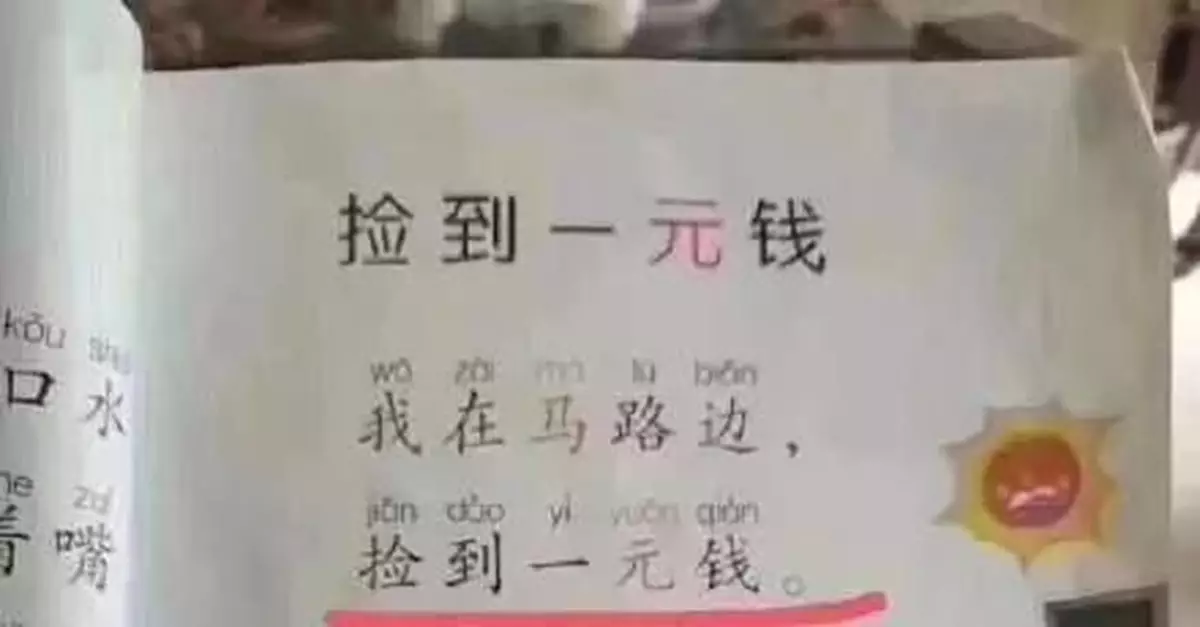 捡到一元钱
wǒ zài mǎ lù biān
我在马路边，
jiǎn dào yì yuán qián
捡到一元钱。
kǒu shuǐ
口水
zuǐ
着嘴